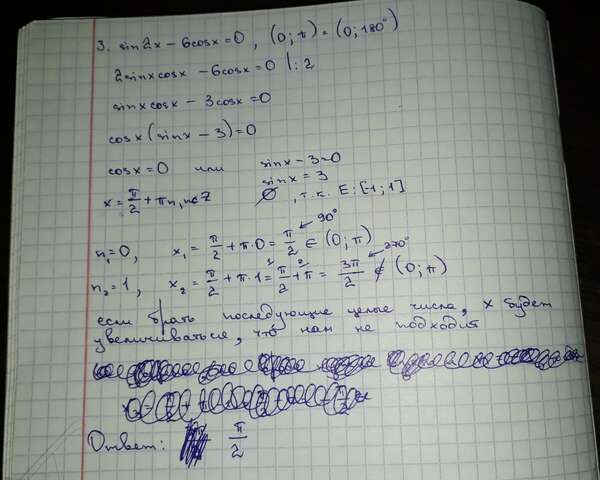 3. sin2x - 6cosx = 0 , (0; π) = (0; 180°)
2sinxcosx - 6cosx = 0 |:2
sinxcosx - 3cosx = 0
cosx(sinx - 3) = 0
cosx = 0 или sinx - 3 = 0
sinx = 3
x = π/2 + πn, n∈Z ∅ , т.к. E: [-1; 1]
90°
n₁ = 0, x₁ = π/2 + π·0 = π/2 ∈ (0; π)
270°
n₂ = 1, x₂ = π/2 + π·1 = π/2 + π = 3π/2 ∉ (0; π)
если брать последующие целые числа, x будет
увеличиваться, что нам не подходит
Ответ: π/2